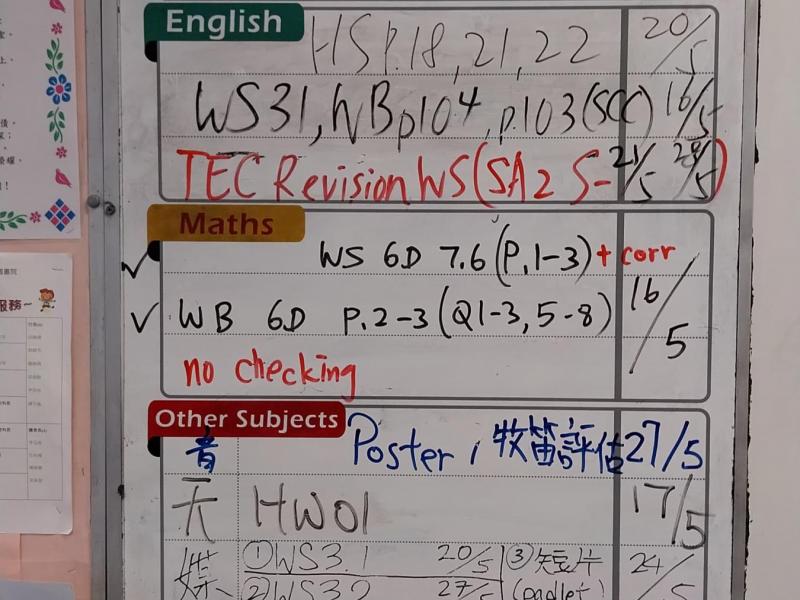 English
HS P.18, 21, 22 20/5
WS31, WB p104, p.103 (SCC) 16/5
TEC Revision WS (SA2 S- 21/5 28/5)
Maths
WS 6D 7.6 (P.1-3) + corr
WB 6D P.2-3 (Q1-3, 5-8) 16/5
no checking
Other Subjects
音 Poster, 牧笛評估 27/5
天 HW01 17/5
① WS3.1 20/5 ③ 短片 24/5
② WS3.2 27/5 (padlet)